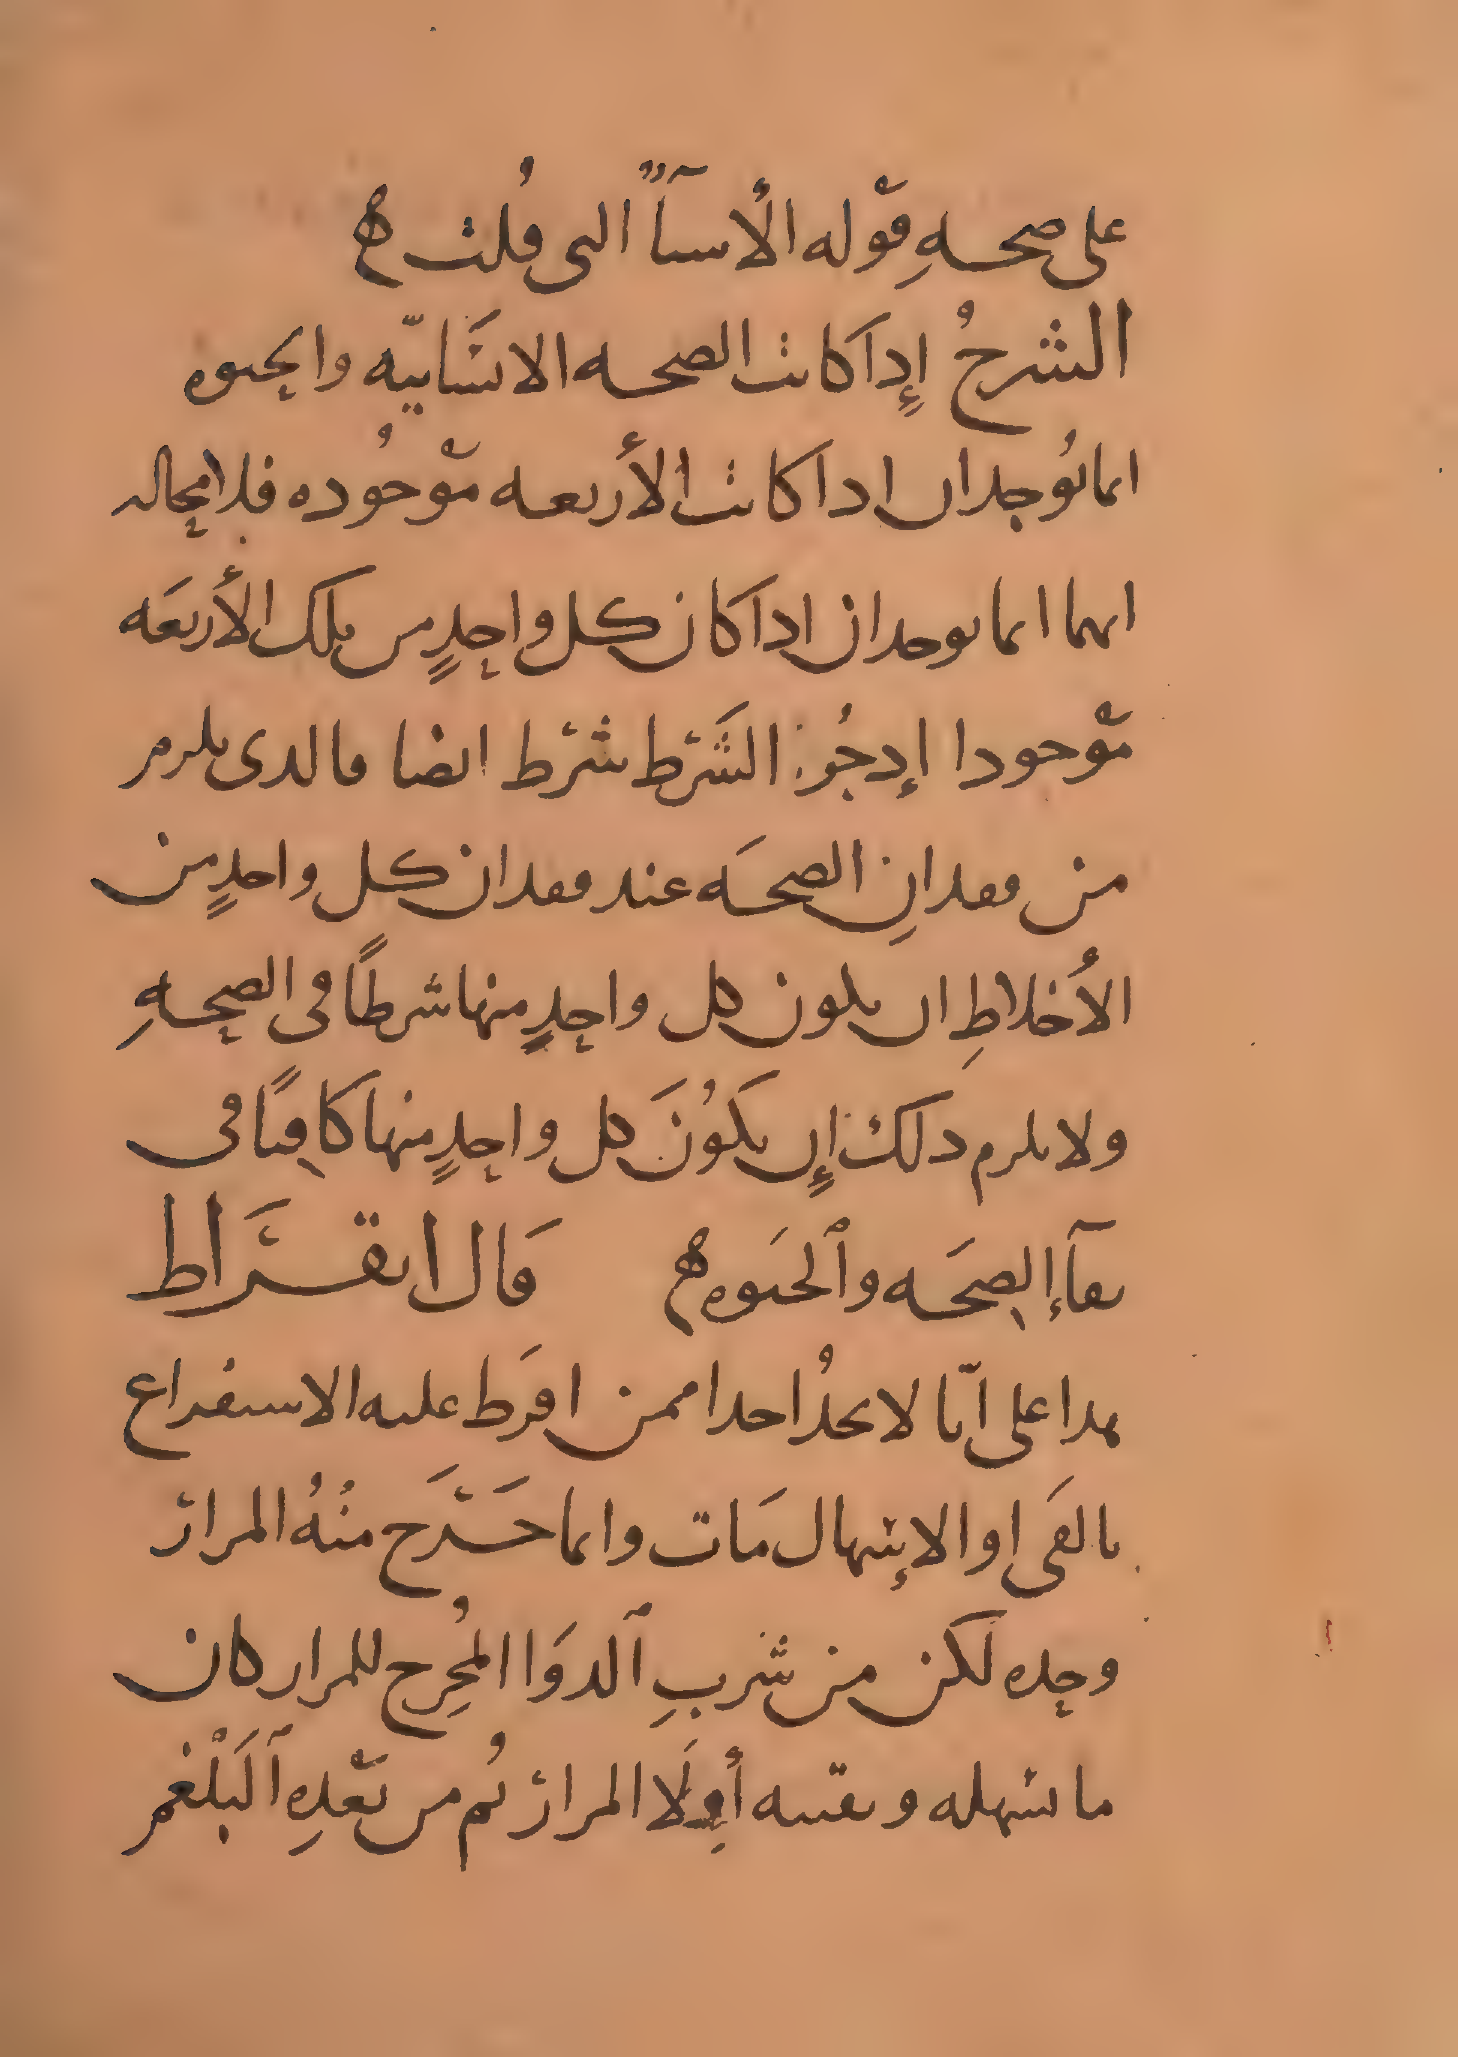 على صحهِ قوله الأسآ التى قُلت ه
الشرحُ إِذا كانت الصحه الانسَانيّه والحيوه
انما توُجدان اذا كانت الأربعه موْجُوده فلا محاله
انهما انما توجدان اذا كان كل واحدٍ من تلك الأربعَه
موْجودا إِذ جُز الشَرْط شرْط ايضا فالذى يلزم
من فقدانِ الصحَه عند فقدان كل واحدٍ من
الأخلاطِ ان يكون كل واحدٍ منها شرطاً فى الصحهِ
ولا يلزم ذلك إن يَكوُنَ كل واحدٍ منها كافياً فى
بقآإ الصحَه والحيَوه ه قَال ابقْـرَاط
بهذا على انّا لا نجدُ احدا ممن افرَط عليه الاستفراع
بالقَى او الاِسهال مَات وانما خَـرَج منُهُ المرار
وحده لكن من شربِ الدوَا المُخرِج للمرار كان
ما يسهله ويقيئه أولَا المرار ثُم من بعْدِه البَلْغم